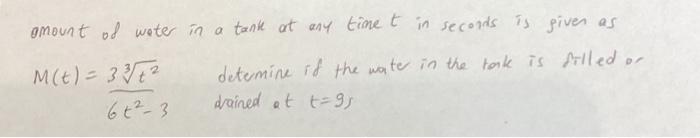 amount of water in a tank at any time t in seconds is given as
M(t) = 3∛t² / 6t² - 3 detemine if the water in the tank is filled or
drained at t=9s